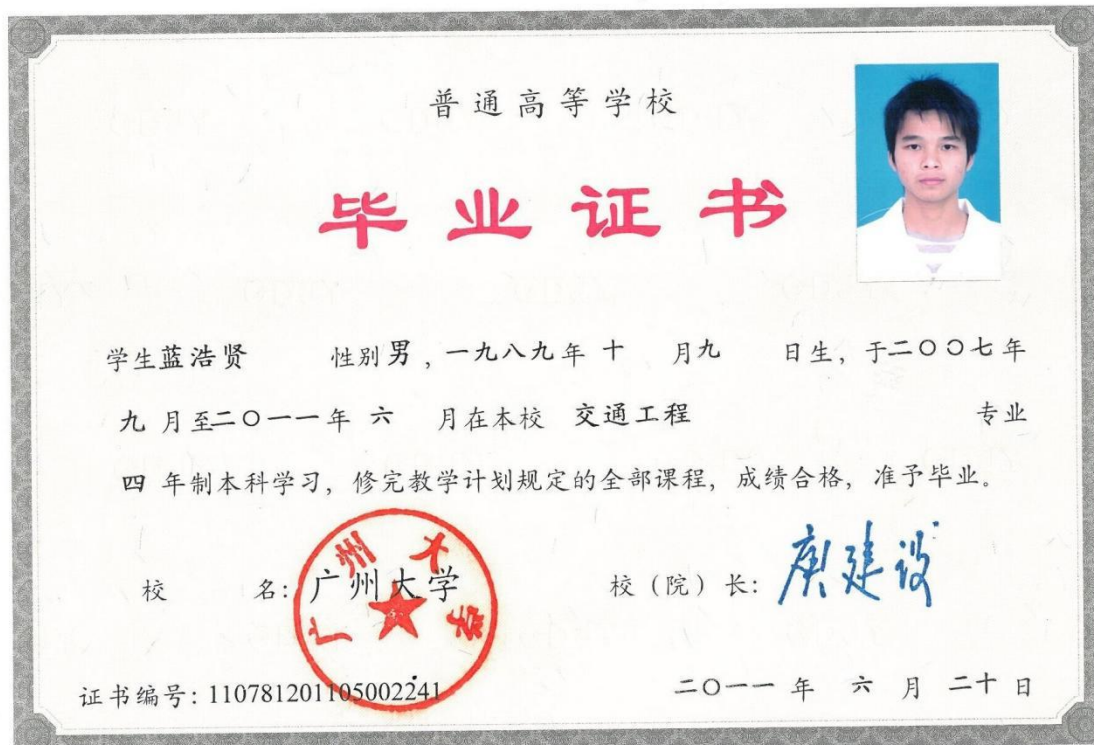 普通高等学校
毕业证书
学生蓝浩贤 性别男,一九八九年十月九日生,于二〇〇七年
九月至二〇一一年六月在本校 交通工程 专业
四年制本科学习,修完教学计划规定的全部课程,成绩合格,准予毕业。
校 名:广州大学
广州大学
校(院)长:庾建设
证书编号:110781201105002241
二〇一一年六月二十日